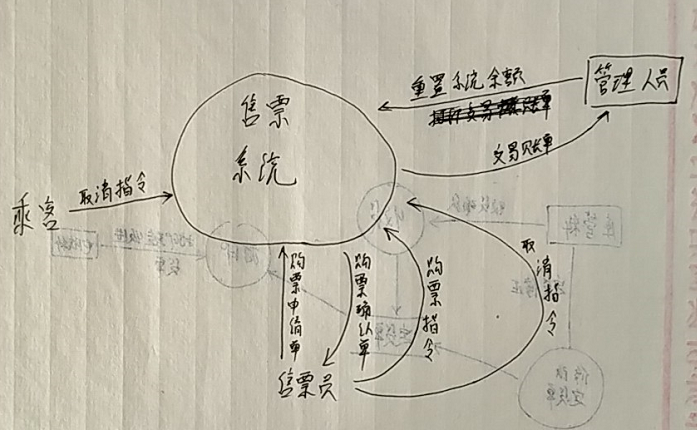 售票
系统
重置系统余额
管理人员
交易账单
乘客
取消指令
购票申请单
购票确认单
购票指令
取消指令
售票员